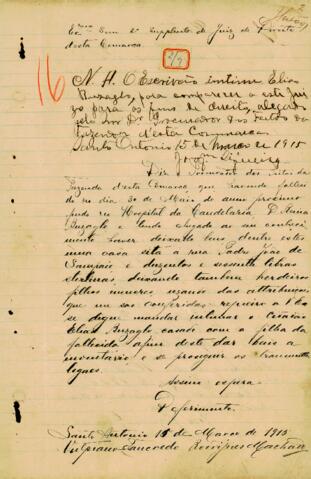 Ex.mo Snr 2º Supplente do Juiz de Direito
desta Comarca.
2/9
16
N. A. O Escrivão intime Elias
Buzaglo, para comparecer a este Jui
zo para os fins de direito, alegado
pelo Snr Dr Procurador dos Feitos da
Fazenda d'esta Commarca
Santo Antonio 15 de Março de 1915
Diz o Promotor dos Feitos da
Fazenda desta Comarca que havendo falleci
do no dia 30 de Maio do anno proximo
findo no Hospital da Candelaria, D. Anna
Buzaglo e tendo chegado ao seu conheci
mento haver deixado bens dentre estes
uma casa sita a rua Padre
e duzentos e sessenta libras
sterlinas, deixando tambem herdeiros
filhos menores, usando das attribuições
que me são conferidas, requeiro a V. Exa
se digne mandar intimar o cidadão
Elias Buzaglo casado com a filha da
fallecida afim deste dar bens a
inventario e se proseguir os
legaes.
Assim espera
Deferimento.
Santo Antonio 15 de Março de 1915
Ulpiano Tancredo Rodrigues Machado